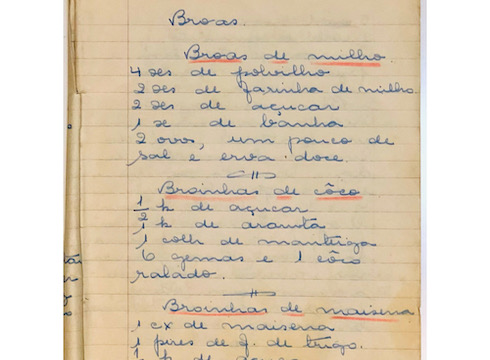 Broas.
Broas de milho
4 xes de polvilho
2 xes de farinha de milho
2 xes de açucar
1 xe de banha
2 ovos, um pouco de
sal e erva-doce.
Broinhas de côco
1/2 k de açucar
1 k de araruta
1 colh de manteiga
6 gemas e 1 côco
ralado.
Broinhas de maisena
1 cx de maisena
1 pires de f. de trigo.